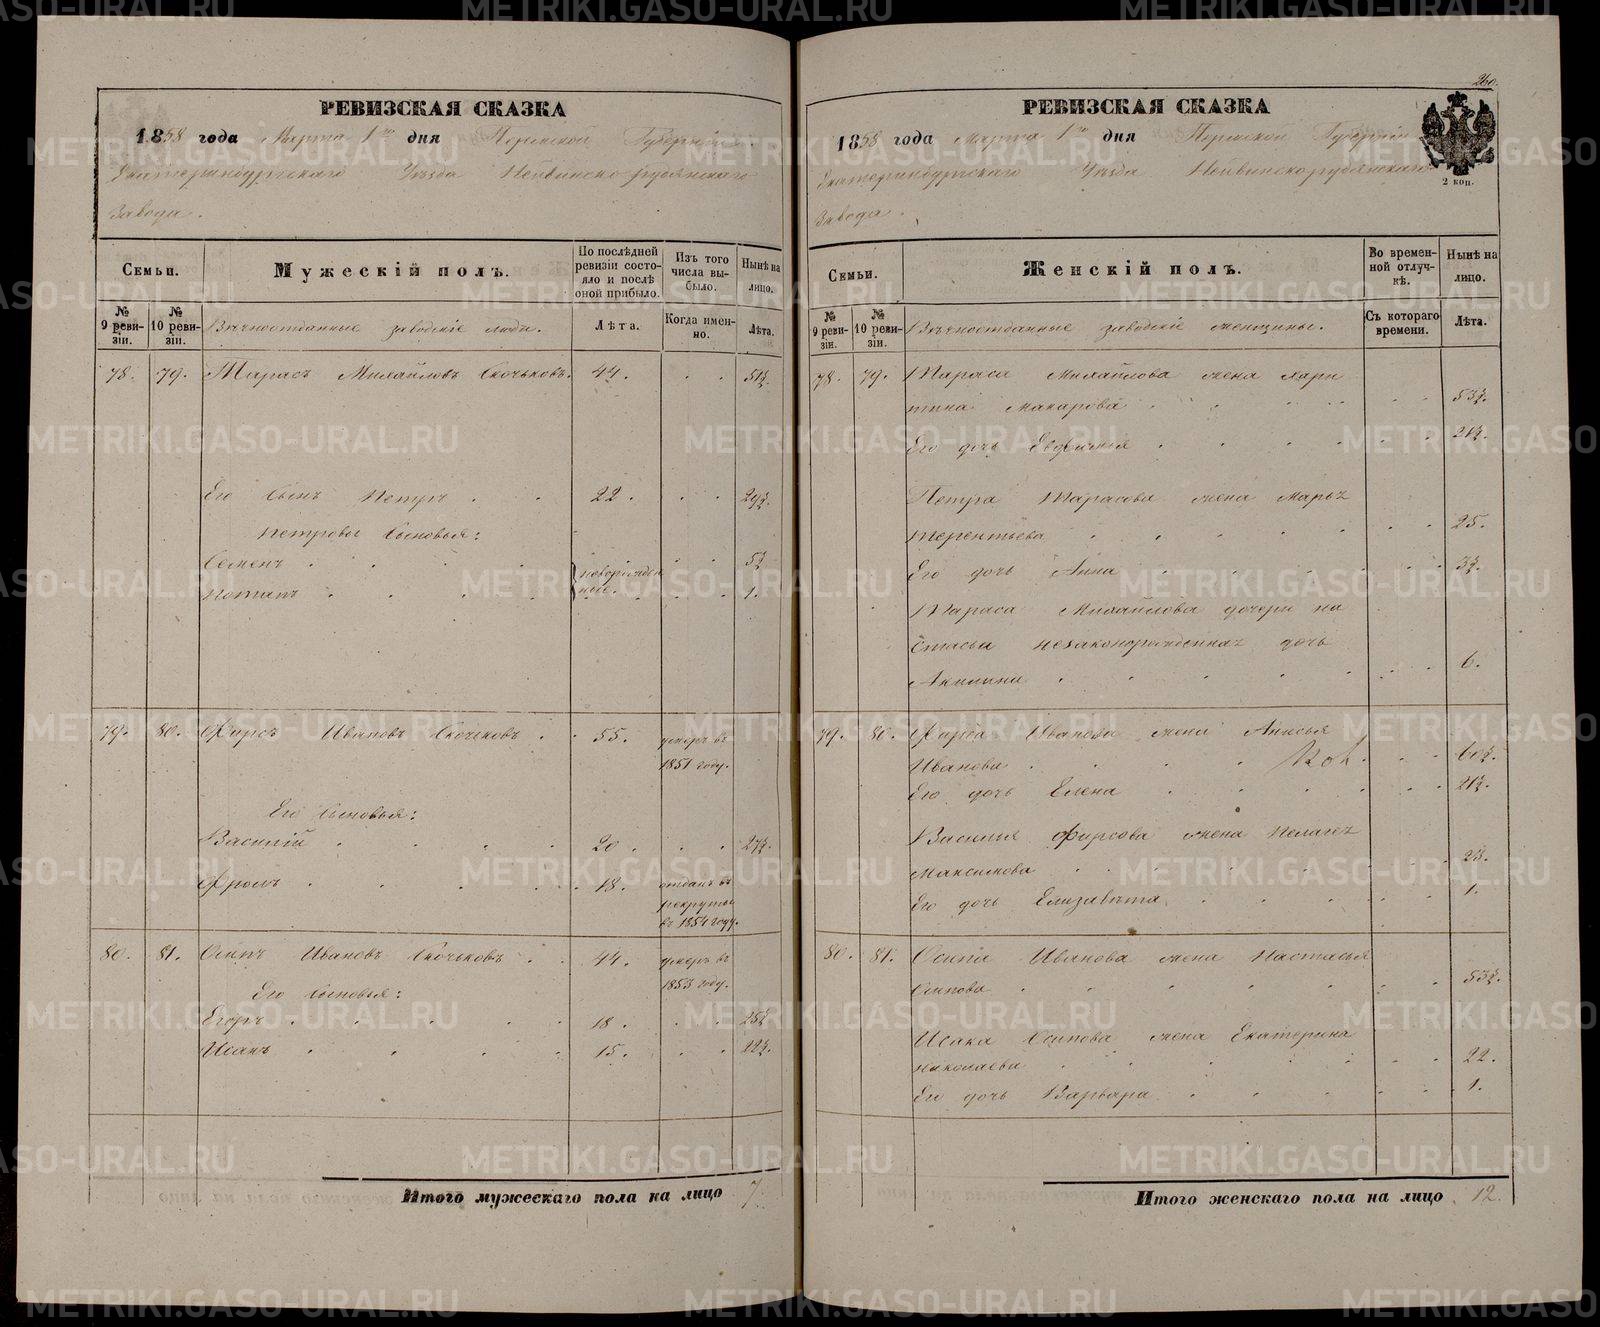 260.
РЕВИЗСКАЯ СКАЗКА
1858 года Марта 1го дня Пермской Губернии
Екатеринбургскаго Уѣзда Нейвинско-рудянскаго
Завода.
Семьи.
Мужескій полъ.
По послѣдней ревизіи состояло и послѣ оной прибыло.
Изъ того числа выбыло.
Нынѣ на лицо.
№ 9 ревизіи.
№ 10 ревизіи.
Вѣчноотданные заводскіе люди.
Лѣта.
Когда именно.
Лѣта.
78. 79. Тарасъ Михайловъ Скочковъ. 44. 51½.
Его Сынъ Петръ 22. 29½.
Петровы Сыновья:
Семенъ новорожден 5½
Потапъ ные. 1.
79. 80. Фирсъ Ивановъ Скочковъ 55. умеръ въ
1851 году.
Его Сыновья:
Василій 20. 27½.
Фролъ 18. отданъ въ
рекруты
въ 1854 году.
80. 81. Осипъ Ивановъ Скочковъ 44. умеръ въ
1853 году.
Его Сыновья:
Егоръ 18. 25½
Исакъ 15. 22½.
Итого мужескаго пола на лицо 7.
РЕВИЗСКАЯ СКАЗКА
1858 года Марта 1го дня Пермской Губерніи
Екатеринбургскаго Уѣзда Нейвинскорудянскаго
2 коп.
Завода.
Семьи.
Женскій полъ.
Во временной отлучкѣ.
Нынѣ на лицо.
№ 9 ревизіи.
№ 10 ревизіи.
Вѣчноотданные заводскіе женщины.
Съ котораго времени.
Лѣта.
78. 79. Тараса Михайлова жена Хари
тина Макарова 53½.
Его дочь Евфимія 21½.
Петра Тарасова жена Марья
Терентьева 25.
Его дочь Анна 3½.
Тараса Михайлова дочери На
стасьи незаконорожденная дочь
Акилина 6.
79. 80. Фирса Иванова жена Анисья
Иванова 60½.
Его дочь Елена 21½.
Василья Фирсова жена Пелагея
Максимова 23.
Его дочь Елизавета 1.
80. 81. Осипа Иванова жена Настасья
Осипова 53½.
Исака Осипова жена Екатерина
Николаева 22.
Его дочь Варвара 1.
Итого женскаго пола на лицо 12.
METRIKI.GASO-URAL.RU